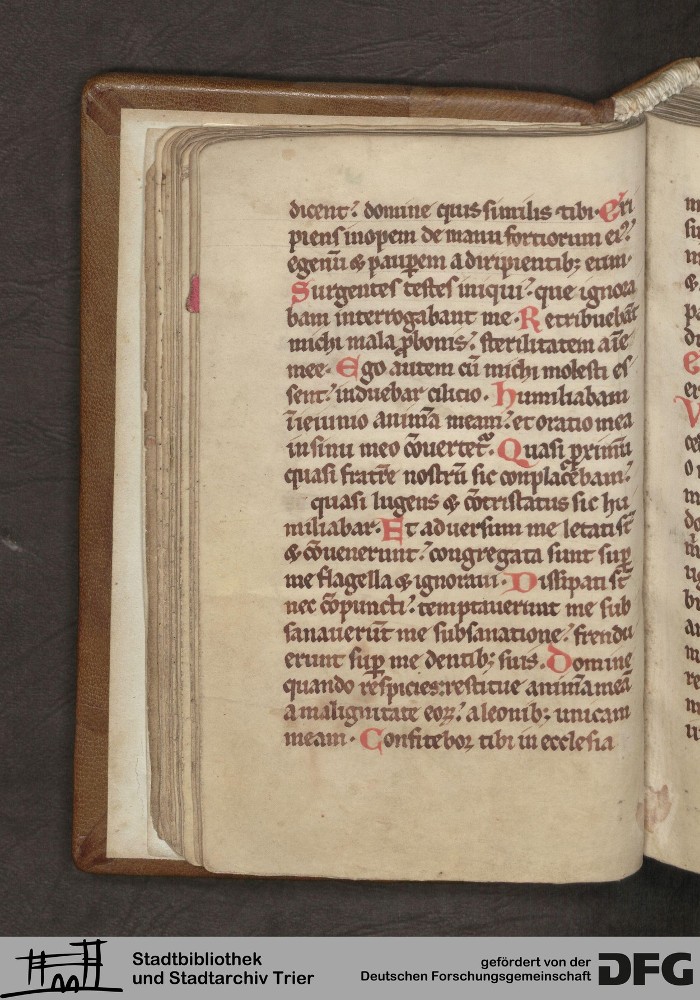 dicent. domine quis similis tibi. Eri
piens inopem de manu fortiorum ei.
egenū & paupem a diripientib; eum.
Surgentes testes iniqui. que ignora
bam interrogabant me. Retribuebāt
michi mala ꝓbonis. sterilitatem aīe
mee. Ego autem cū michi molesti es
sent. induebar cilicio. Humiliabam
īieiunio animā meam. et oratio mea
in sinu meo cōuertet᷑. Quasi ꝓximū
quasi fratrē nostrū sic conplacēbam.
quasi lugens & cōtristatus sic hu
miliabar. Et aduersum me letati st̄
& cōuenerunt. congregata sunt suꝑ
me flagella & ignoraui. Dissipati st̄
nec cōpuncti. temptauerunt me sub
sanauerūt me subsanatione. frendu
erunt suꝑ me dentib; suis. Domine
quando respicies: restitue animā meā
a malignitate eoꝝ. a leonib; unicam
meam. Confiteboꝝ tibi in ecclesia
Stadtbibliothek
und Stadtarchiv Trier
gefördert von der
Deutschen Forschungsgemeinschaft
DFG